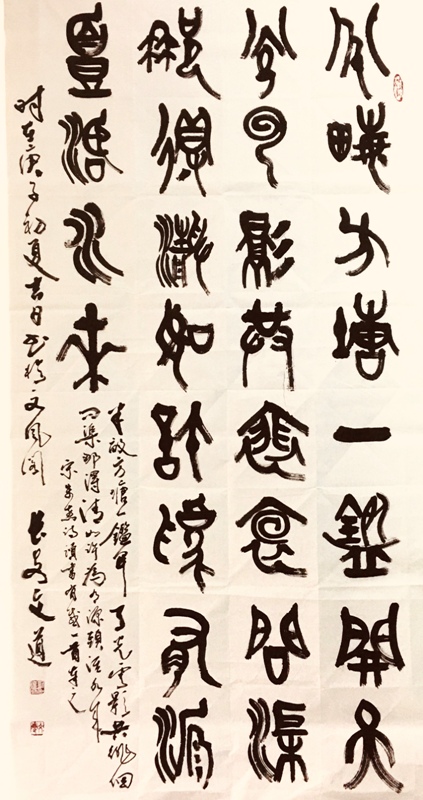 半畮方塘一鑑開天
光云影共徘徊問渠
那得清如許為有源
頭活水來
半畝方塘一鑑開天光雲影共徘徊
问渠那得清如許為有源頭活水来
宋朱熹詩讀書有感一首
时在庚子初夏吉日书於文风阁